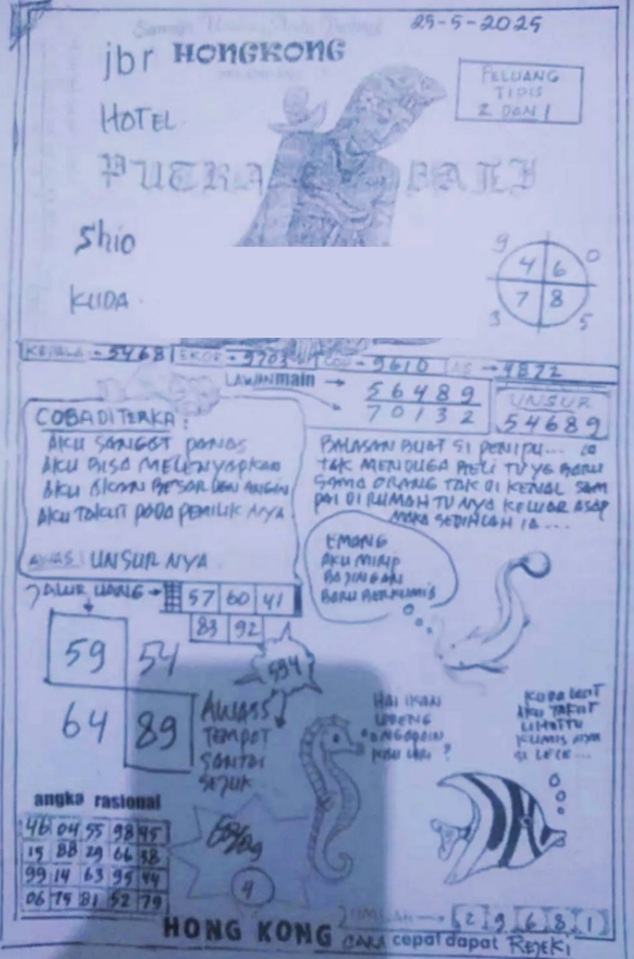 25-5-2025
jbr HONGKONG
PELUANG
TIPIS
2 DAN 1
HOTEL
PUTRA BALI
Shio
KUDA
9 0
4 6
7 8
3 5
KEPALA - 5468 EKOR - 9703 COP - 9610 AS → 4872
LAWAN main →
56489
70132
UNSUR
54689
COBA DITERKA:
AKU SANGAT PANAS
AKU BISA MELENYAPKAN
AKU AKAN BESAR DAN ANGIN
AKU TAKUT PADA PEMILIKNYA
AWAS UNSUR NYA
BALASAN BUAT SI PENIPU...
TAK MENDUGA BELI TV YG BARU
SAMA ORANG TAK DI KENAL SAM
PAI DI RUMAH TV NYA KELUAR ASAP
MAKA SEDIHLAH IA...
EMANG
AKU MIRIP
BAJINGAN
BARU BERKUMIS
JALUR UANG → 57 60 41
83 92
594
59 54
64 89
AWASS
TEMPAT
SANTAI
SEJUK
HAI IKAN
NGAPAIN
KAU LARI ?
KUDA LAUT
AKU TAKUT
LIHAT TU
KUMIS NYA
SI LELE...
angka rasional
46 04 55 98 45
15 88 29 66 38
99 14 63 95 44
06 75 81 52 79
4
JUMLAH → 2 9 6 8 1
HONG KONG CARA cepat dapat REJEKI